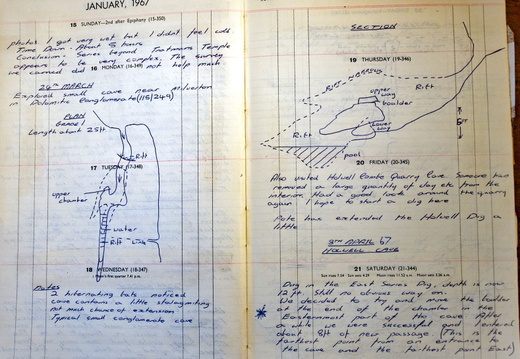 JANUARY, 1967
15 SUNDAY—2nd after Epiphany (15-350)
photos I got very wet but I didn't feel cold
Time Down - About 5 hours
Conclusion Series beyond Tratmans Temple
appears to be very complex, The survey
we carried did not help much
16 MONDAY (16-349)
24TH MARCH
Explored small cave near Milverton
in Dolomitic Conglomerate (115/249)
PLAN
GRADE 1
Length about 25ft
Rift
17 TUESDAY (17-348)
upper
chamber
water
Rift
18 WEDNESDAY (18-347)
Notes
2 hibernating bats noticed
cave contains a little stalagmiting
Not much chance of extension
Typical small conglomerate cave
SECTION
19 THURSDAY (19-346)
Rift
upper
way
boulder
Rift
lower
way
Rift
5FT
pool
20 FRIDAY (20-345)
Also visited Holwell Combe Quarry Cave Someone has
removed a large quantity of clay etc from the
interior. Had a good look around the quarry
again. I hope to start a dig here
Pete has extended the Holwell Dig a
little
3RD APRIL 67
HOLWELL CAVE
21 SATURDAY (21-344)
Dig in the East Series Dig, depth is now
12 ft. Still no obvious way on.
We decided to try and move the boulder
at the end of the chamber in the
Easternmost part of the cave After
a while we were successful and I entered
about 8ft of new passage (This is the
farthest point from an entrance to
the cave and the farthest point East)